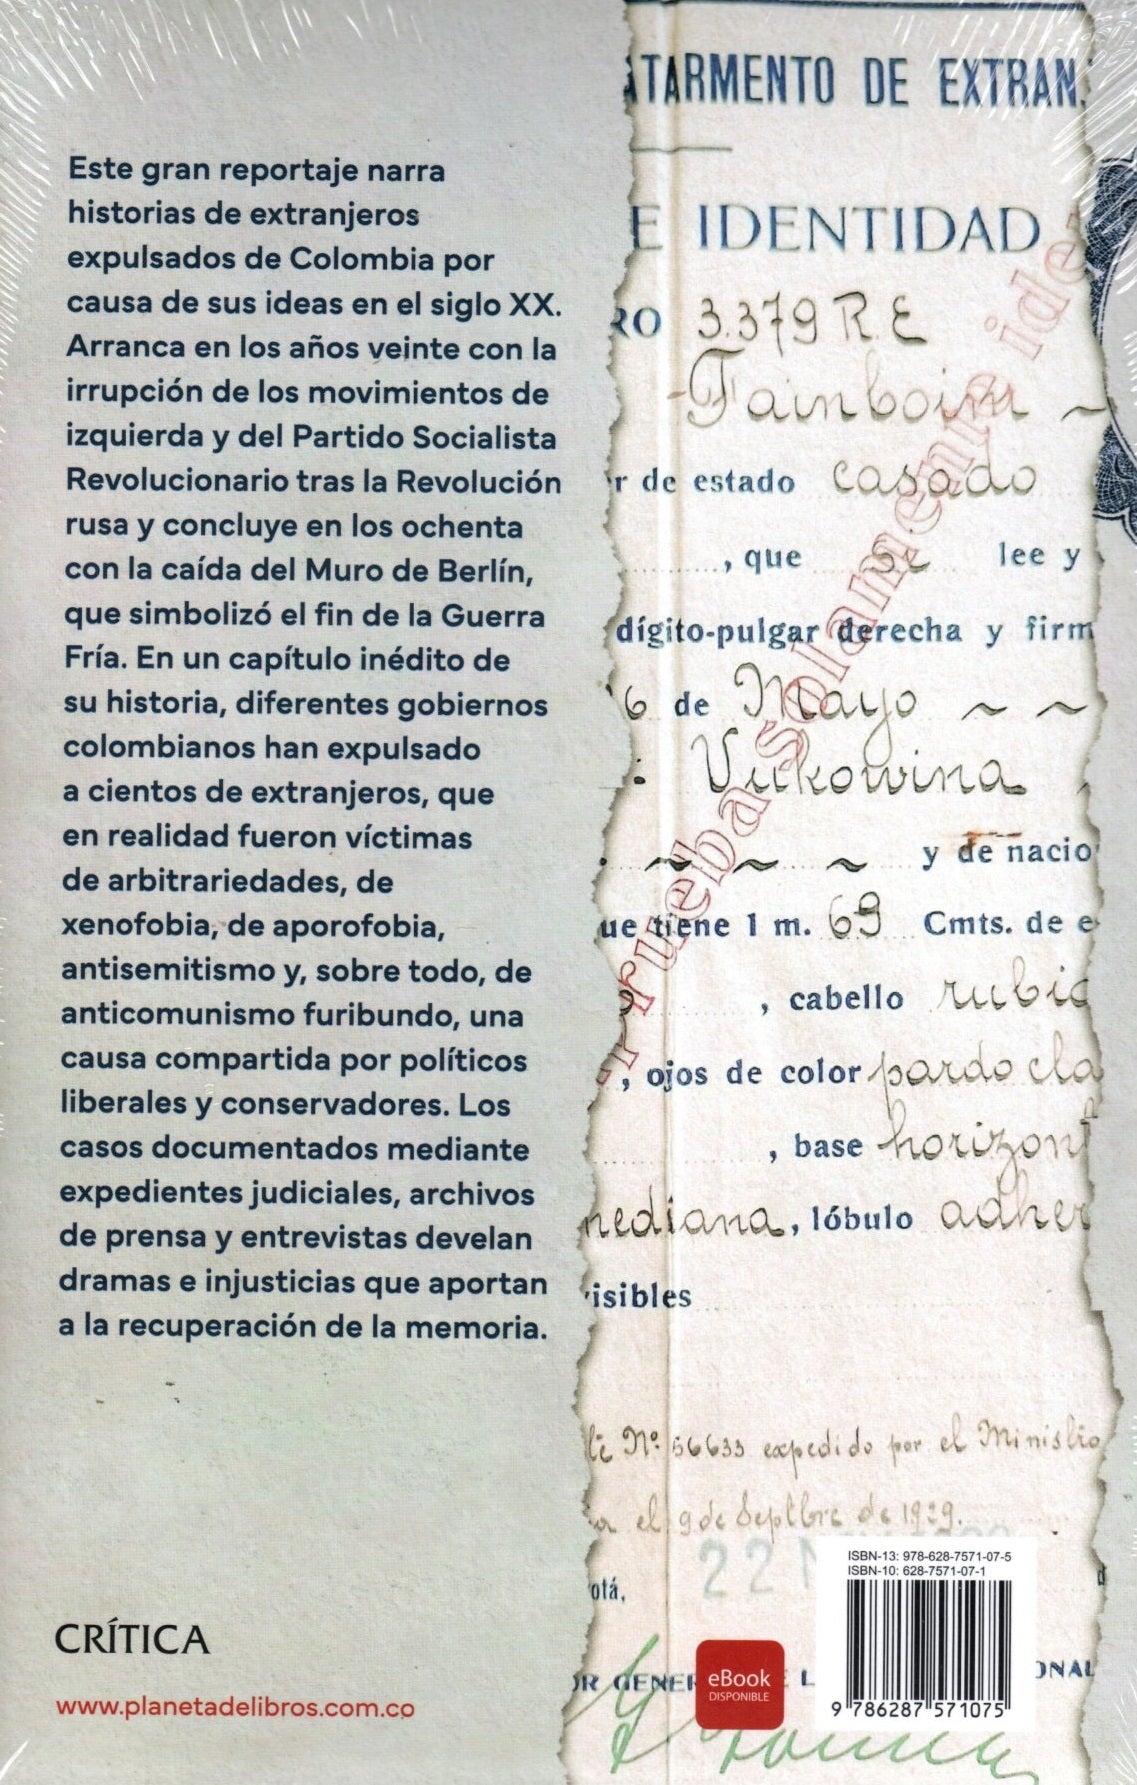 Este gran reportaje narra
historias de extranjeros
expulsados de Colombia por
causa de sus ideas en el siglo XX.
Arranca en los años veinte con la
irrupción de los movimientos de
izquierda y del Partido Socialista
Revolucionario tras la Revolución
rusa y concluye en los ochenta
con la caída del Muro de Berlín,
que simbolizó el fin de la Guerra
Fría. En un capítulo inédito de
su historia, diferentes gobiernos
colombianos han expulsado
a cientos de extranjeros, que
en realidad fueron víctimas
de arbitrariedades, de
xenofobia, de aporofobia,
antisemitismo y, sobre todo, de
anticomunismo furibundo, una
causa compartida por políticos
liberales y conservadores. Los
casos documentados mediante
expedientes judiciales, archivos
de prensa y entrevistas develan
dramas e injusticias que aportan
a la recuperación de la memoria.
CRÍTICA
www.planetadelibros.com.co
ATARMENTO DE EXTRAN.
E IDENTIDAD
RO 3.379 R.E
Fainboim ~
r de estado casado
, que se lee y
dígito-pulgar derecha y firm
6 de Mayo ~ ~
: Vukowina
~ ~ ~ y de nacio
ue tiene 1 m. 69 Cmts. de e
, cabello rubio
, ojos de color pardo cla
, base horizont
mediana, lóbulo adher
isibles
Nº 56633 expedido por el Ministro
a el 9 de Septbre de 1929.
22
otá,
OR GENER E L ONAL
prueba solamente ide
eBook
DISPONIBLE
ISBN-13: 978-628-7571-07-5
ISBN-10: 628-7571-07-1
9 786287 571075